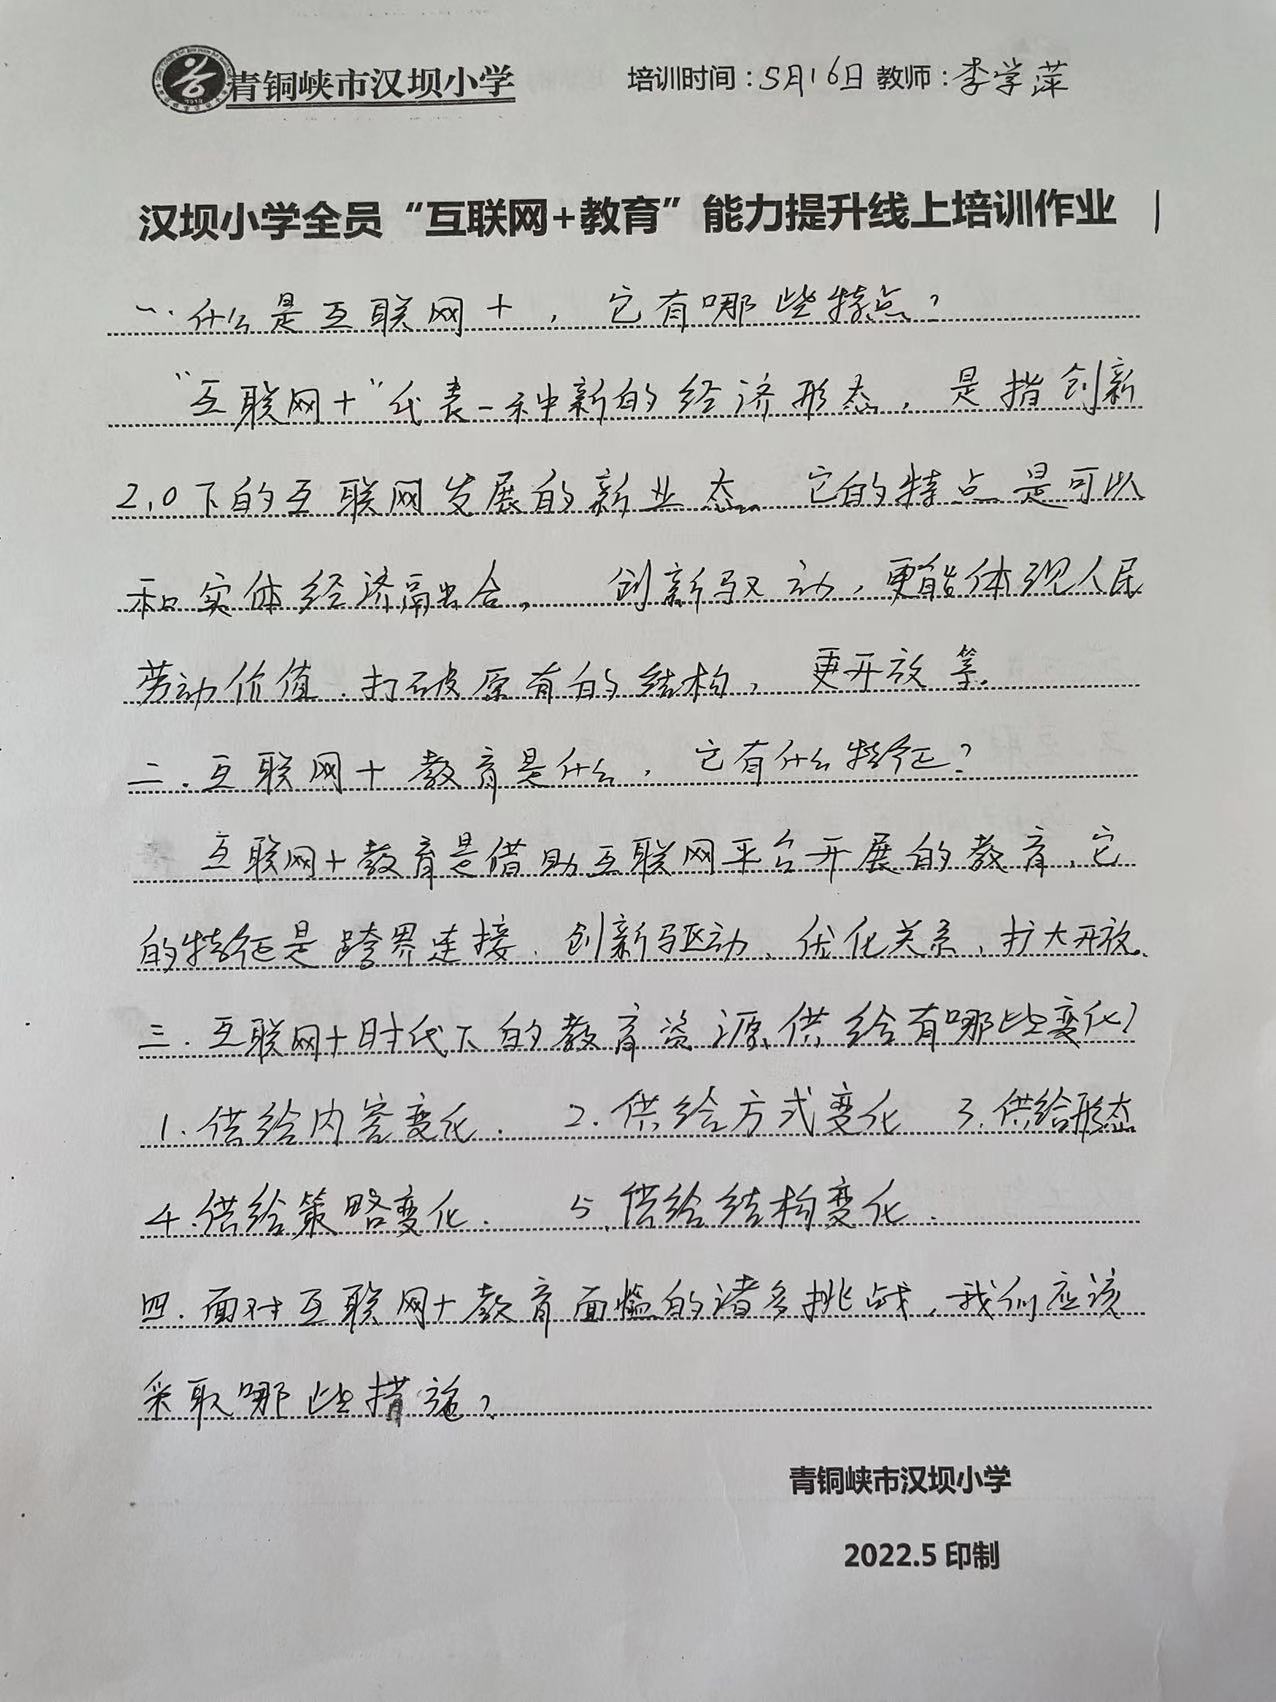 青铜峡市汉坝小学 培训时间：5月16日 教师：李学萍
汉坝小学全员“互联网+教育”能力提升线上培训作业 1
一.什么是互联网+，它有哪些特点？
“互联网+”代表一种新的经济形态，是指创新
2.0下的互联网发展的新业态。它的特点是可以
和实体经济融合， 创新驱动，更能体现人民
劳动价值、打破原有的结构， 更开放等。
二.互联网+教育是什么，它有什么特征？
互联网+教育是借助互联网平台开展的教育，它
的特征是跨界连接、创新驱动、优化关系、扩大开放。
三.互联网+时代下的教育资源供给有哪些变化？
1.供给内容变化. 2.供给方式变化 3.供给形态
4.供给策略变化. 5.供给结构变化.
四.面对互联网+教育面临的诸多挑战，我们应该
采取哪些措施？
青铜峡市汉坝小学
2022.5 印制